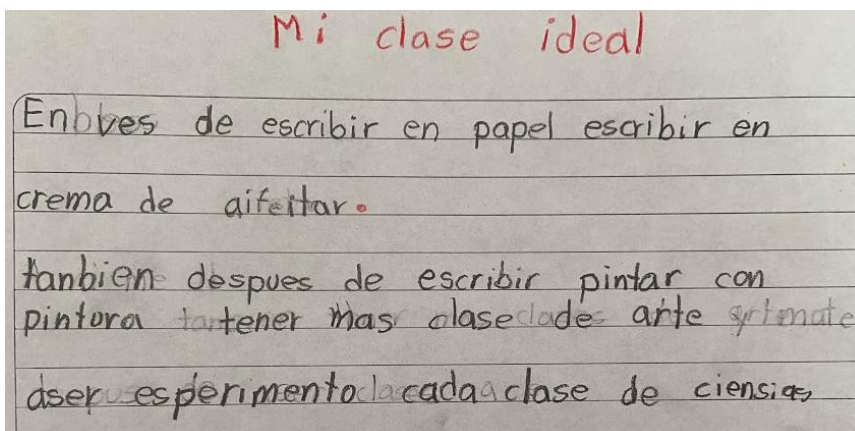 Mi clase ideal
Enbves de escribir en papel escribir en
crema de aifeitar.
tanbien despues de escribir pintar con
pintora tener mas clase de arte
aser esperimento cada clase de ciensias